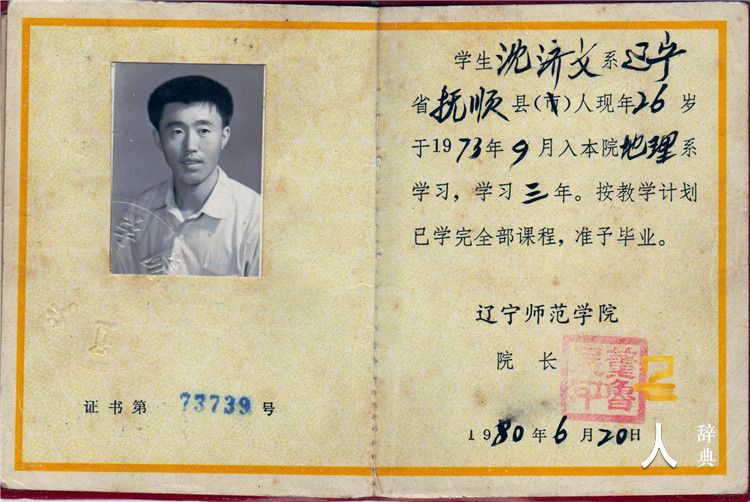 证书第 73739 号
学生沈济文系辽宁
省抚顺县(市)人现年26岁
于1973年9月入本院地理系
学习，学习三年。按教学计划
已学完全部课程，准予毕业。
辽宁师范学院
院 长
1980年6月20日
人 辞典